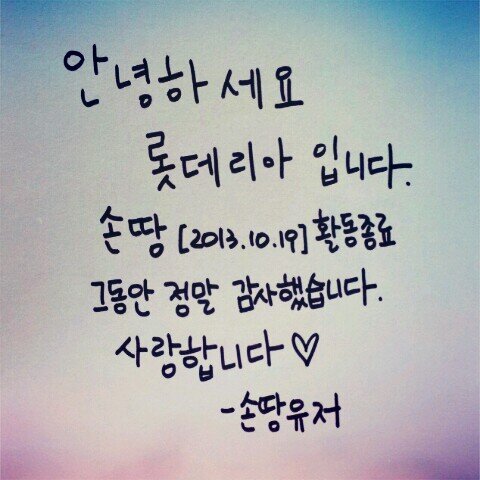 안녕하세요
롯데리아 입니다.
손땅 [2013.10.19] 활동종료
그동안 정말 감사했습니다.
사랑합니다♡
-손땅유저